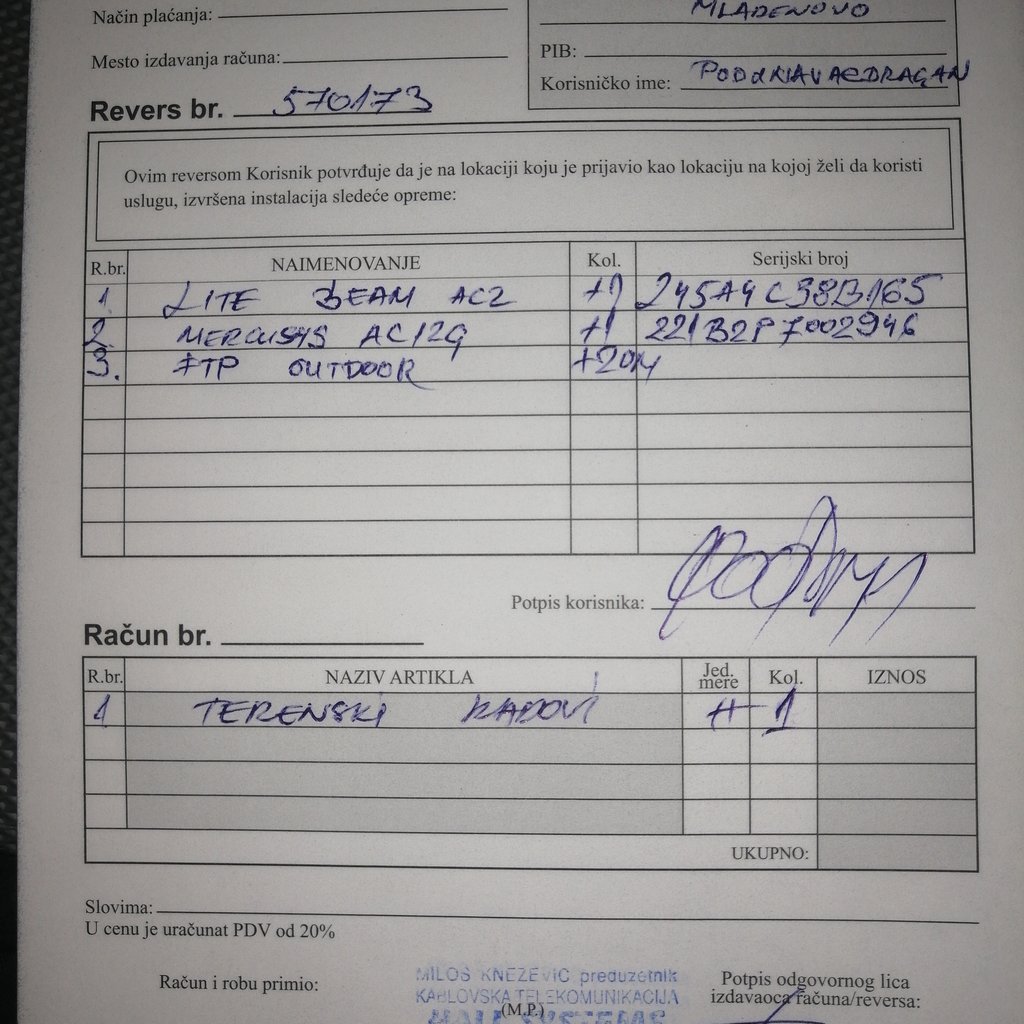 MLADENOVO
Način plaćanja:
Mesto izdavanja računa:
PIB:
Korisničko ime:
Revers br. 570173
Ovim reversom Korisnik potvrđuje da je na lokaciji koju je prijavio kao lokaciju na kojoj želi da koristi
uslugu, izvršena instalacija sledeće opreme:
R.br. NAIMENOVANJE Kol. Serijski broj
1 LITE BEAM AC2 +1 245A4C38B165
2. MERCUSYS AC12G +1 221B2P7002946
3. FTP OUTDOOR +20M
Potpis korisnika:
Račun br.
R.br. NAZIV ARTIKLA Jed. mere Kol. IZNOS
1 TERENSKI RADOVI H 1
UKUPNO:
Slovima:
U cenu je uračunat PDV od 20%
Račun i robu primio:
MILOŠ KNEŽEVIĆ preduzetnik
KABLOVSKA TELEKOMUNIKACIJA
(M.P.)
Potpis odgovornog lica
izdavaoca računa/reversa: